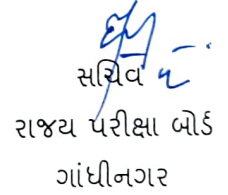 સચિવ
રાજય પરીક્ષા બોર્ડ
ગાંધીનગર